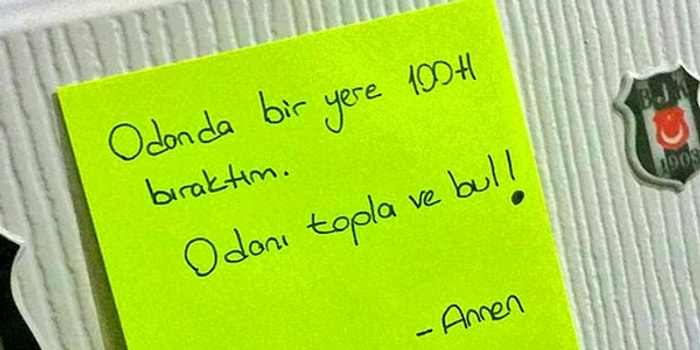 Odanda bir yere 100tl
bıraktım.
Odanı topla ve bul!
-Annen
BJK
1903